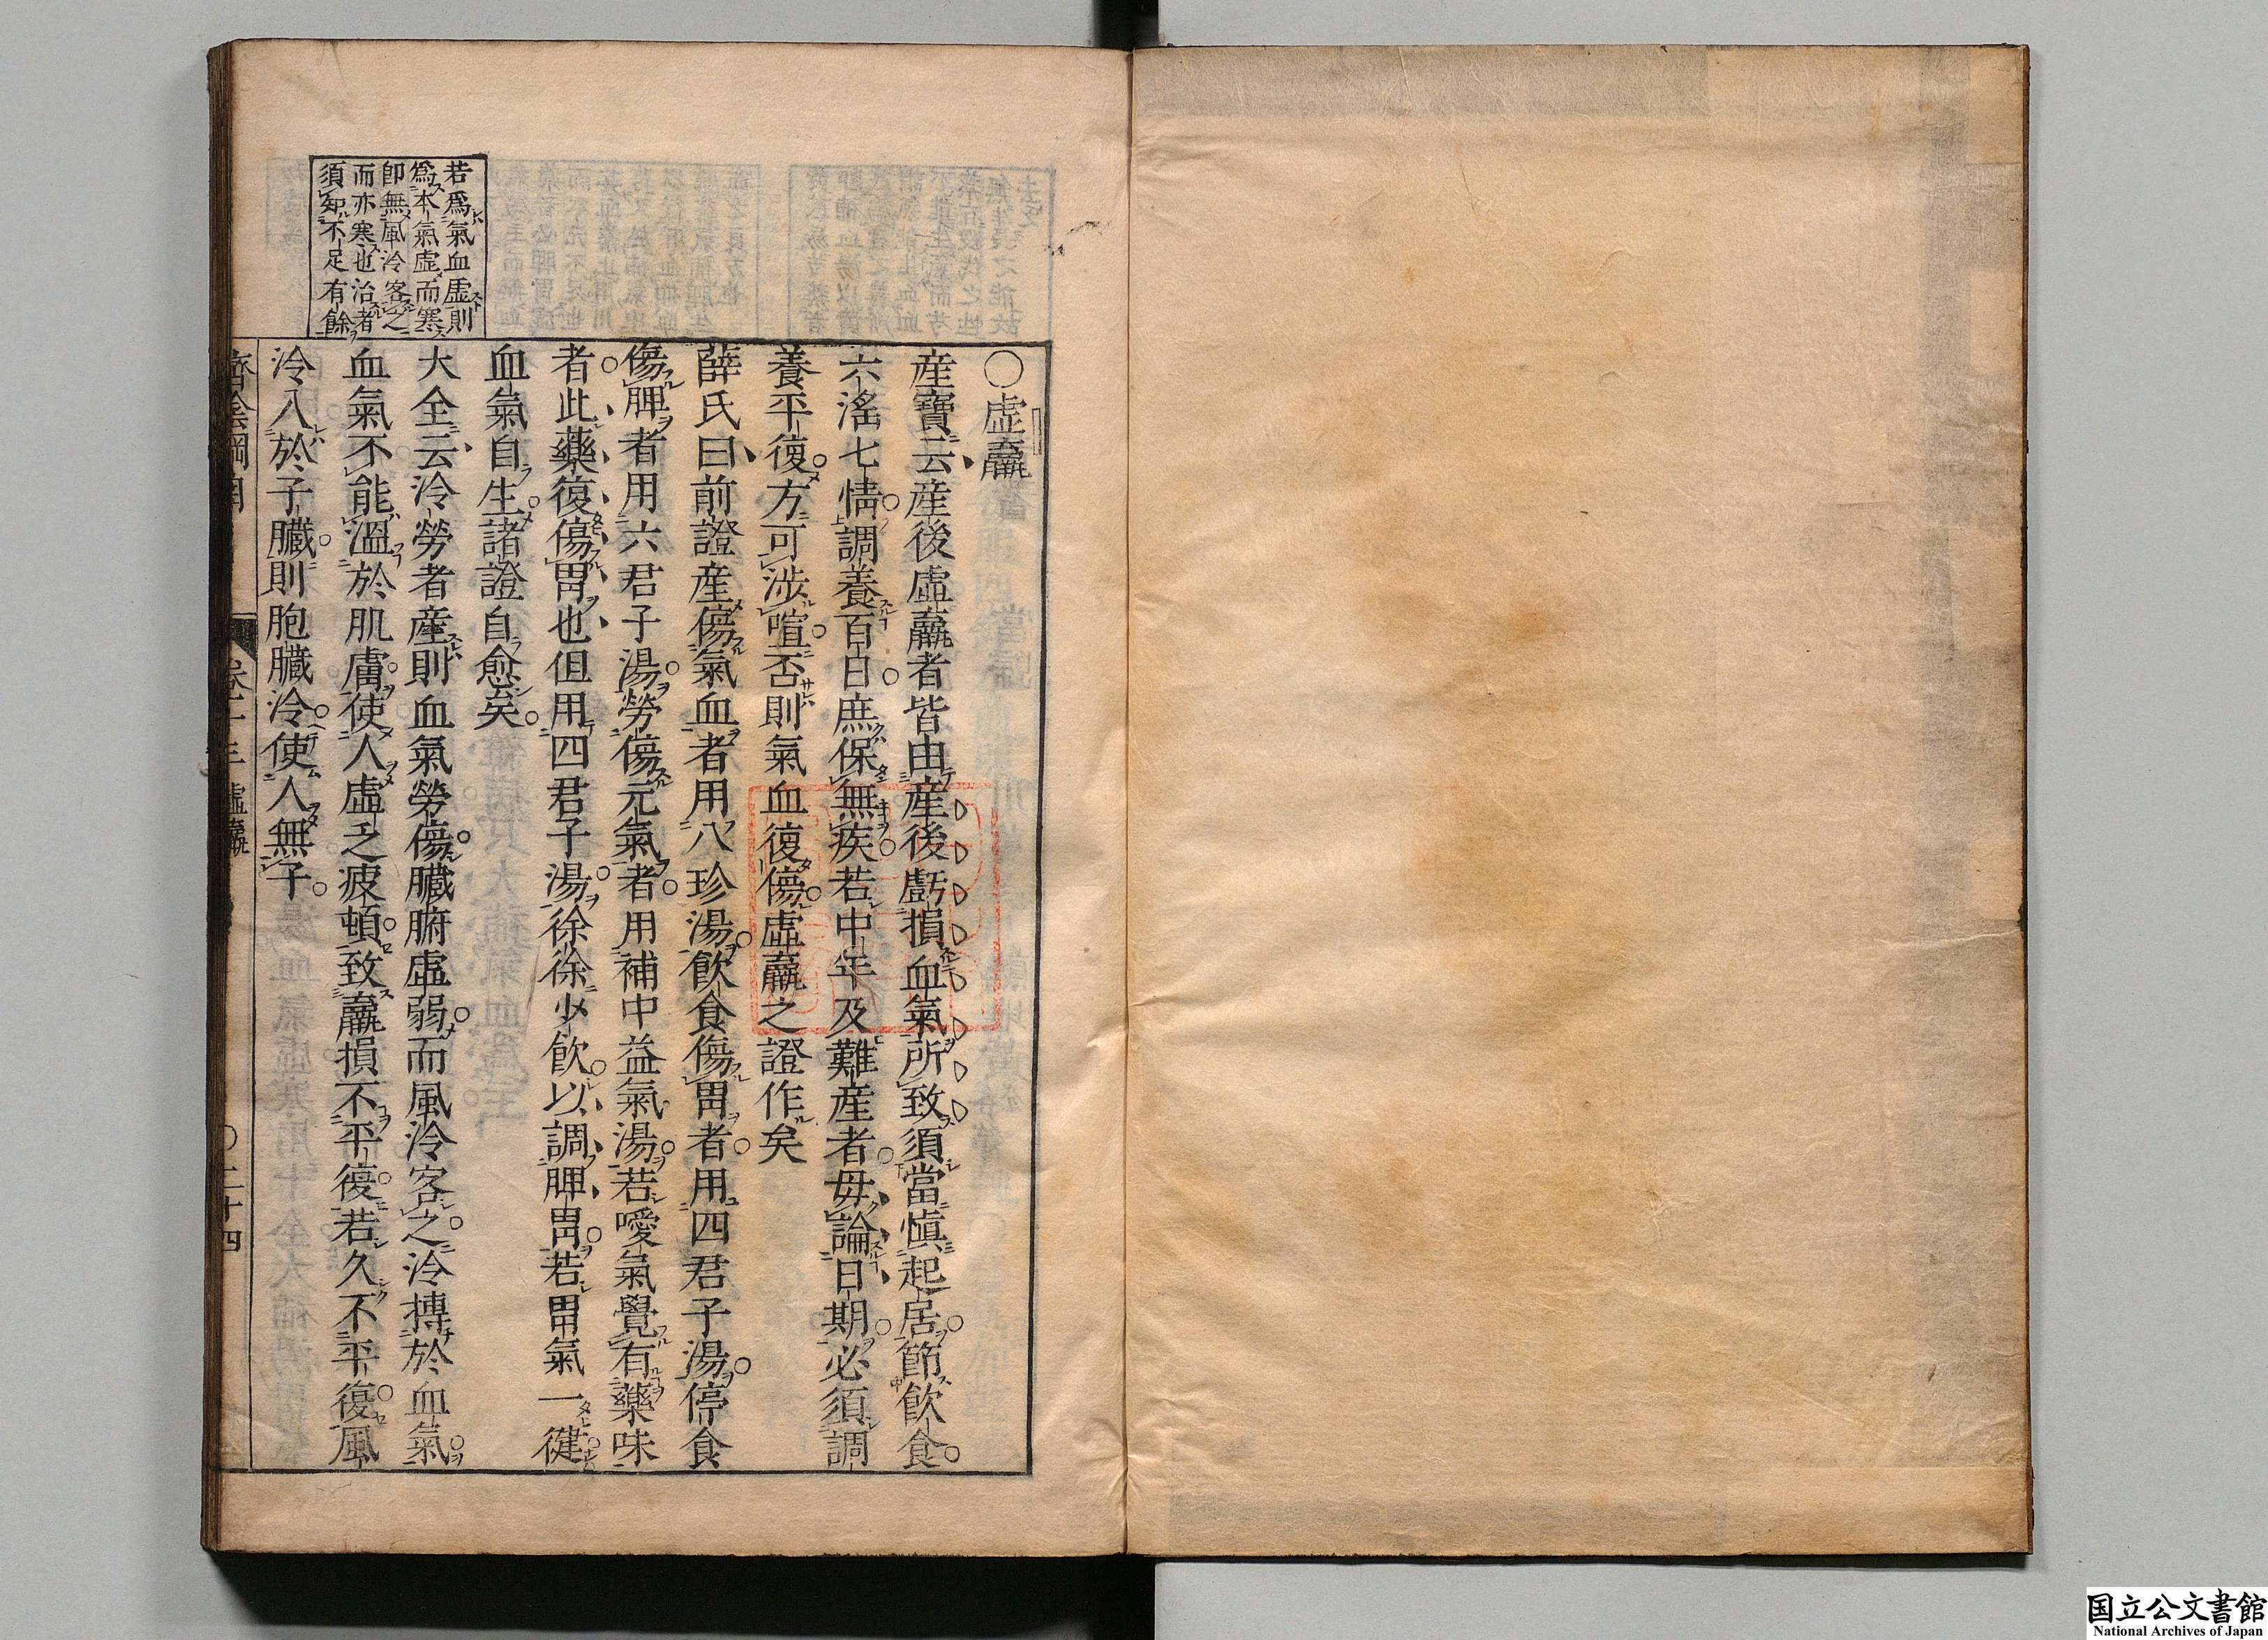 〇虛羸
産寶云産後虛羸者皆由産後虧損血氣所致須當愼起居節飮食
六淫七情調養百日庶保無疾若中年及難産者毋論日期必須調
養平復方可涉喧否則氣血復傷虛羸之證作矣
薛氏曰前證産傷氣血者用八珍湯飮食傷胃者用四君子湯停食
傷脾者用六君子湯勞傷元氣者用補中益氣湯若噯氣覺有藥味
者此藥復傷胃也但用四君子湯徐徐少飮以調脾胃若胃氣一健
血氣自生諸證自愈矣
大全云冷勞者産則血氣勞傷臟腑虛弱而風冷客之冷搏於血氣
血氣不能溫於肌膚使人虛乏疲頓致羸損不平復若久不平復風
冷入於子臟則胞臟冷使人無子
若爲氣血虛則
爲本氣虛而寒
卽無風冷客之
而亦寒也治者
須知不足有餘
濟陰綱目 卷十三 虛羸 〇二十四
国立公文書館
National Archives of Japan